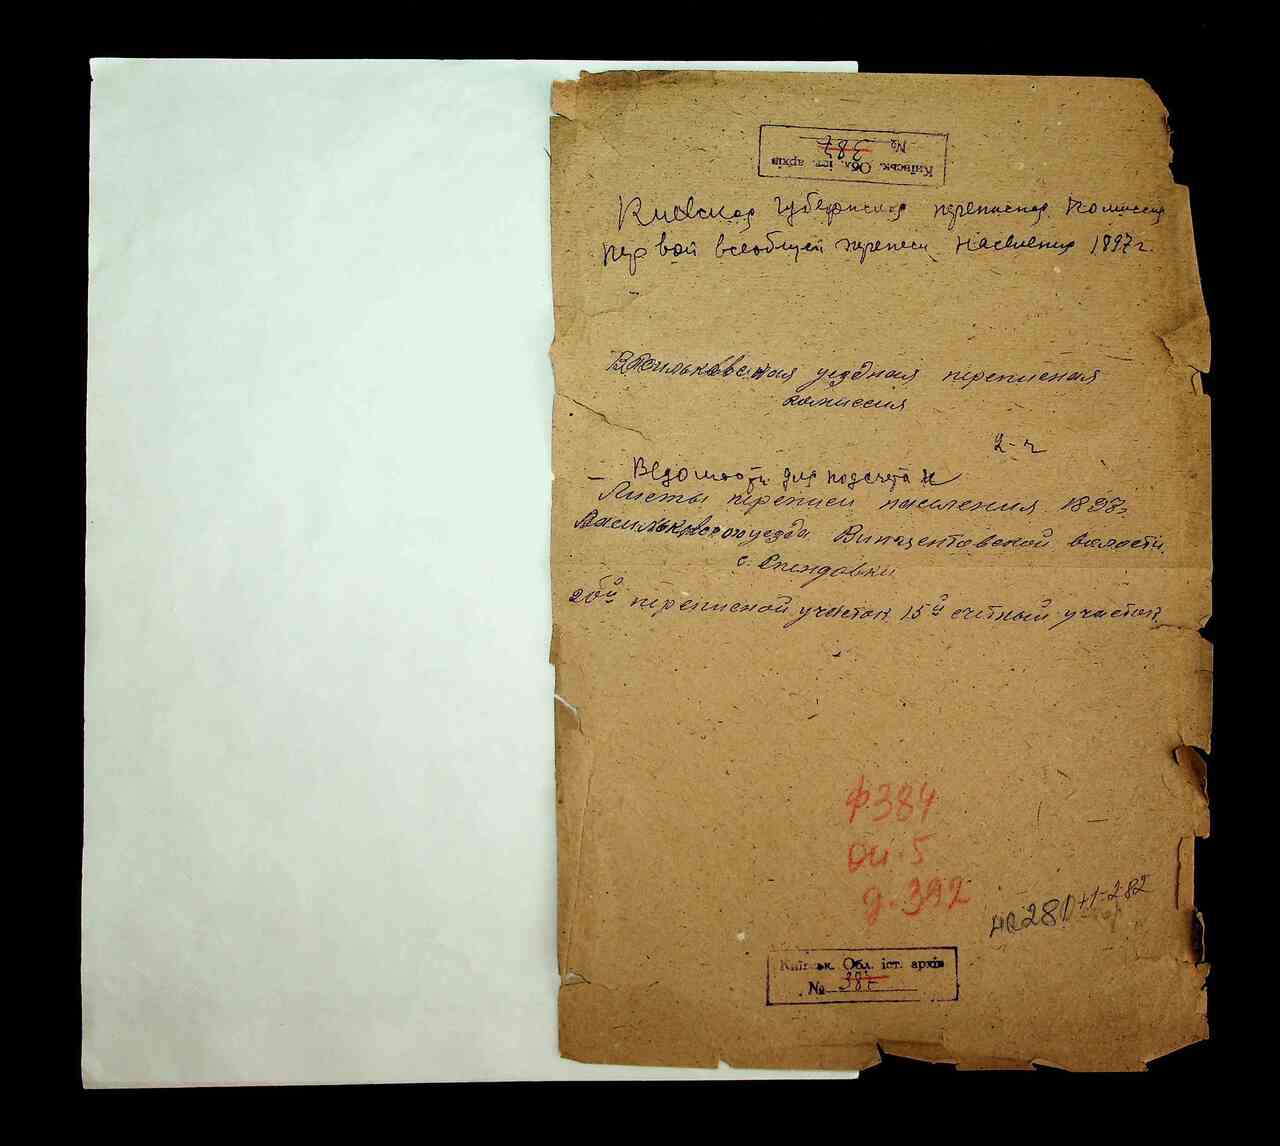 Київськ. Обл. іст. архів
№ 387
Киевская губернская переписная комиссия
первой всеобщей переписи населения 1897 г.
Васильковская уездная переписная
комиссия
2-ч
Ведомость для подсчета и
Листы переписи населения 1897г
Васильковского уезда Винцентовской волости,
с. Снендовки
20ый переписной участок 15й счетный участок
ф384
оп. 5
д. 392
на 280+1-282
Київськ. Обл. іст. архів
№ 387